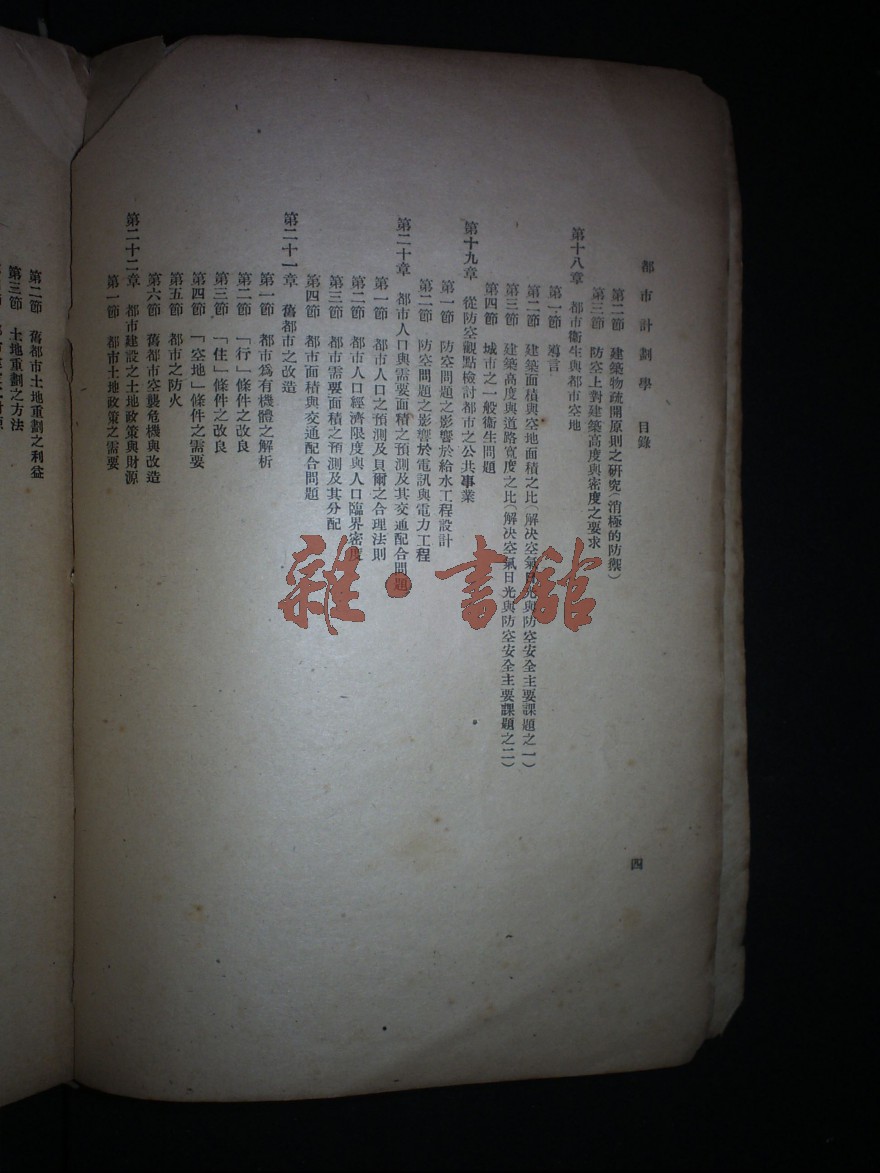 都市計劃學 目錄
四
第二節 建築物疏開原則之研究(消極的防禦)
第三節 防空上對建築高度與密度之要求
第十八章 都市衞生與都市空地
第一節 導言
第二節 建築面積與空地面積之比(解決空氣日光與防空安全主要課題之一)
第三節 建築高度與道路寬度之比(解決空氣日光與防空安全主要課題之二)
第四節 城市之一般衞生問題
第十九章 從防空觀點檢討都市之公共事業
第一節 防空問題之影響於給水工程設計
第二節 防空問題之影響於電訊與電力工程
第二十章 都市人口與需要面積之預測及其交通配合問題
第一節 都市人口之預測及貝爾之合理法則
第二節 都市人口經濟限度與人口臨界密度
第三節 都市需要面積之預測及其分配
第四節 都市面積與交通配合問題
第二十一章 舊都市之改造
第一節 都市爲有機體之解析
第二節 「行」條件之改良
第三節 「住」條件之改良
第四節 「空地」條件之需要
第五節 都市之防火
第六節 舊都市空襲危機與改造
第二十二章 都市建設之土地政策與財源
第一節 都市土地政策之需要
第二節 舊都市土地重劃之利益
第三節 土地重劃之方法
雜·書館